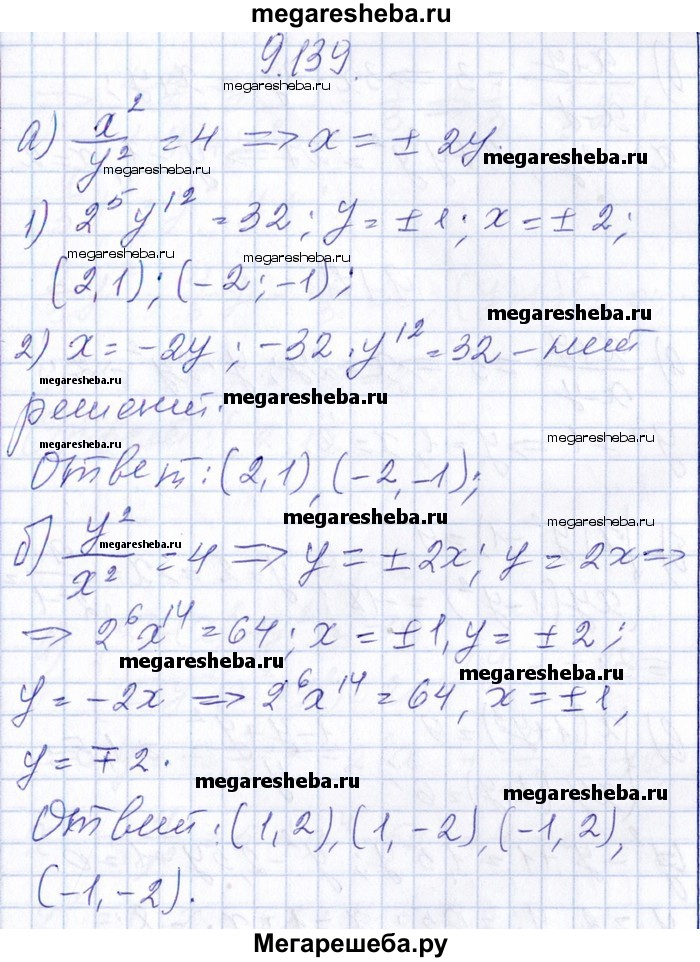 megaresheba.ru
9.139.
megaresheba.ru
а) x²/y² = 4 => x = ± 2y.
megaresheba.ru
megaresheba.ru
1) 2⁵y¹² = 32; y = ± 1; x = ± 2;
megaresheba.ru
(2,1); (-2; -1);
megaresheba.ru
2) x = -2y; -32·y¹² = 32 – нет
megaresheba.ru
megaresheba.ru
решений.
megaresheba.ru
megaresheba.ru
Ответ: (2,1), (-2,-1);
megaresheba.ru
megaresheba.ru
б) y²/x² = 4 => y = ± 2x; y = 2x =>
megaresheba.ru
=> 2⁶x¹⁴ = 64; x = ± 1, y = ± 2;
megaresheba.ru
megaresheba.ru
y = -2x => 2⁶x¹⁴ = 64, x = ± 1,
y = ∓ 2.
megaresheba.ru
megaresheba.ru
Ответ: (1,2), (1,-2), (-1,2),
(-1,-2).
Мегарешеба.ру